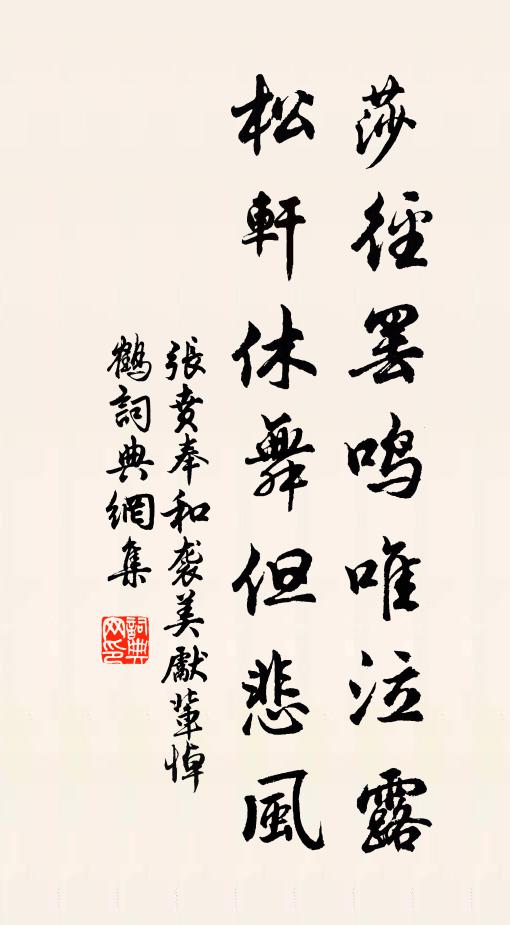 莎徑罢鸣唯泣露
松軒休舞但悲風
張賁奉和袭美獻輩悼
鶴詞典網集
詞典
网印